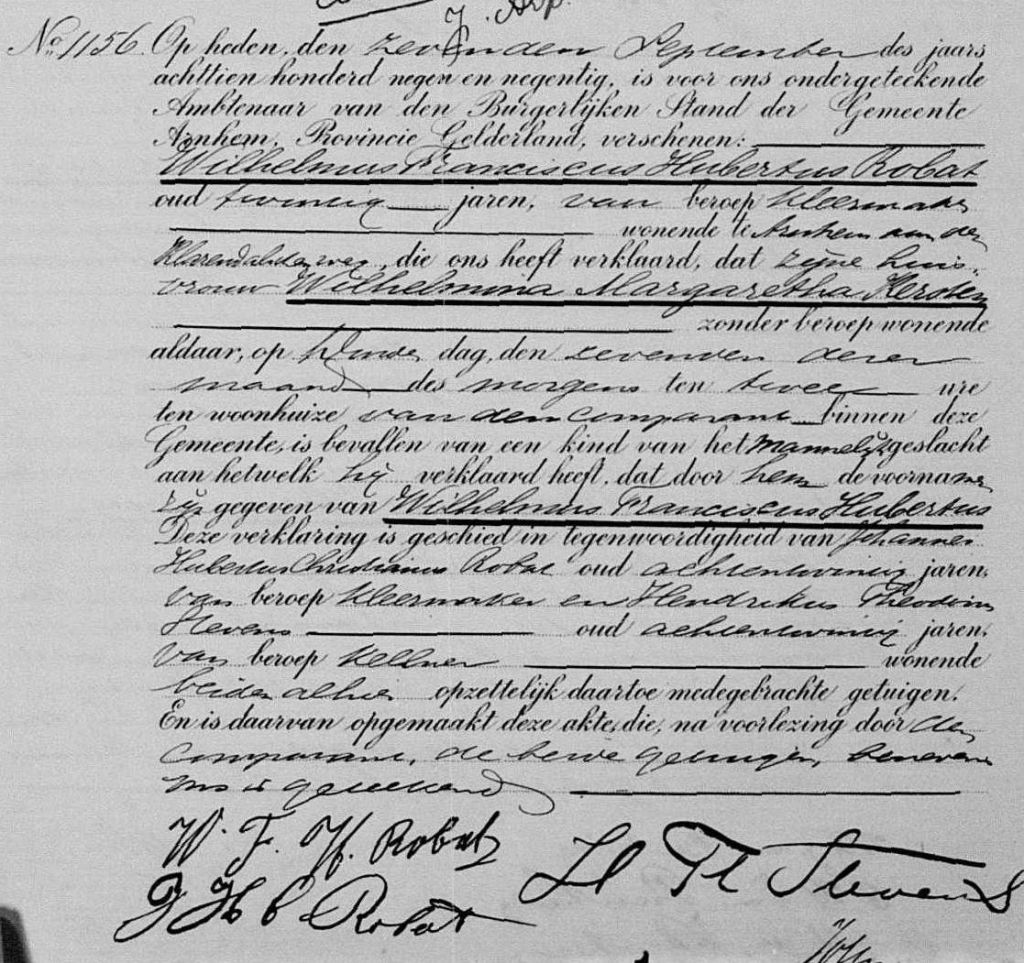 No. 1156. Op heden, den zevenden September des jaars
achttien honderd negen en negentig, is voor ons ondergeteekende
Ambtenaar van den Burgerlijken Stand der Gemeente
Arnhem, Provincie Gelderland, verschenen:
Wilhelmus Franciscus Hubertus Robat
oud twintig jaren, van beroep kleermaker
wonende te Arnhem aan den
Klarendalschenweg, die ons heeft verklaard, dat zijne huis-
vrouw Wilhelmina Margaretha Kersten
zonder beroep wonende
aldaar, op dag, den zevenden dezer
maand des morgens ten twee ure
ten woonhuize van den comparant binnen deze
Gemeente, is bevallen van een kind van het mannelijk geslacht
aan hetwelk hij verklaard heeft, dat door hem de voornamen
zijn gegeven van Wilhelmus Franciscus Hubertus
Deze verklaring is geschied in tegenwoordigheid van Johannes
Hubertus Christianus Robat oud achtentwintig jaren,
van beroep kleermaker en Hendrikus Theodorus
Stevens oud achtentwintig jaren,
van beroep kellner wonende
beiden alhier opzettelijk daartoe medegebrachte getuigen.
En is daarvan opgemaakt deze akte, die, na voorlezing door den
comparant, de beide getuigen, benevens
ons is geteekend
W. F. H. Robat
H Th Stevens
J H C Robat